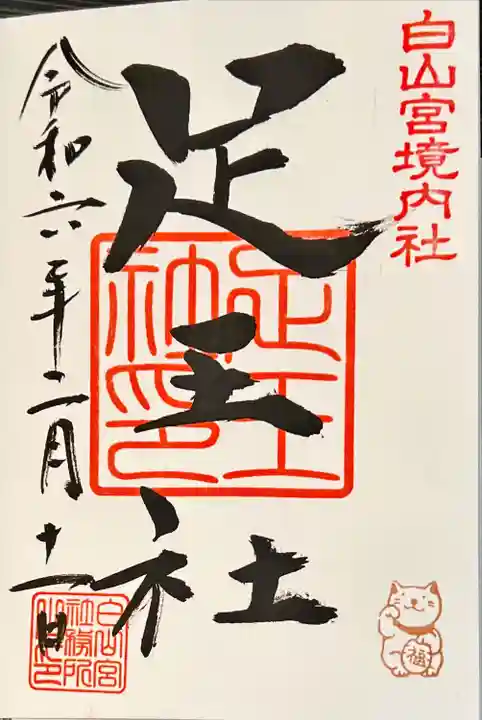 白山宮境内社
足王社
足王社印
令和六年二月十一日
白山宮社務所之印
福